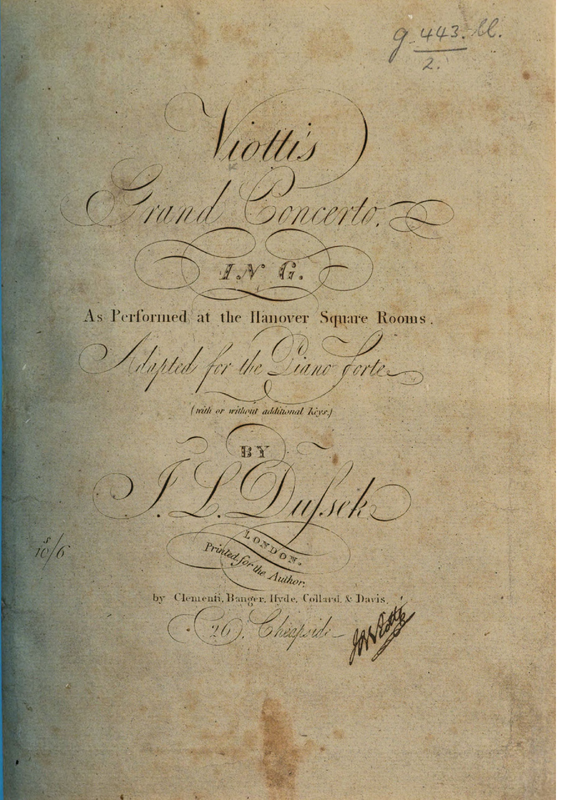 g. 443. ll.
2.
Viotti's
Grand Concerto.
IN G.
As Performed at the Hanover Square Rooms.
Adapted for the Piano Forte
(with or without additional Keys.)
BY
J. L. Dufsek
LONDON.
Printed for the Author,
10/6
by Clementi, Banger, Hyde, Collard, & Davis,
26, Cheapside
JB Viotti